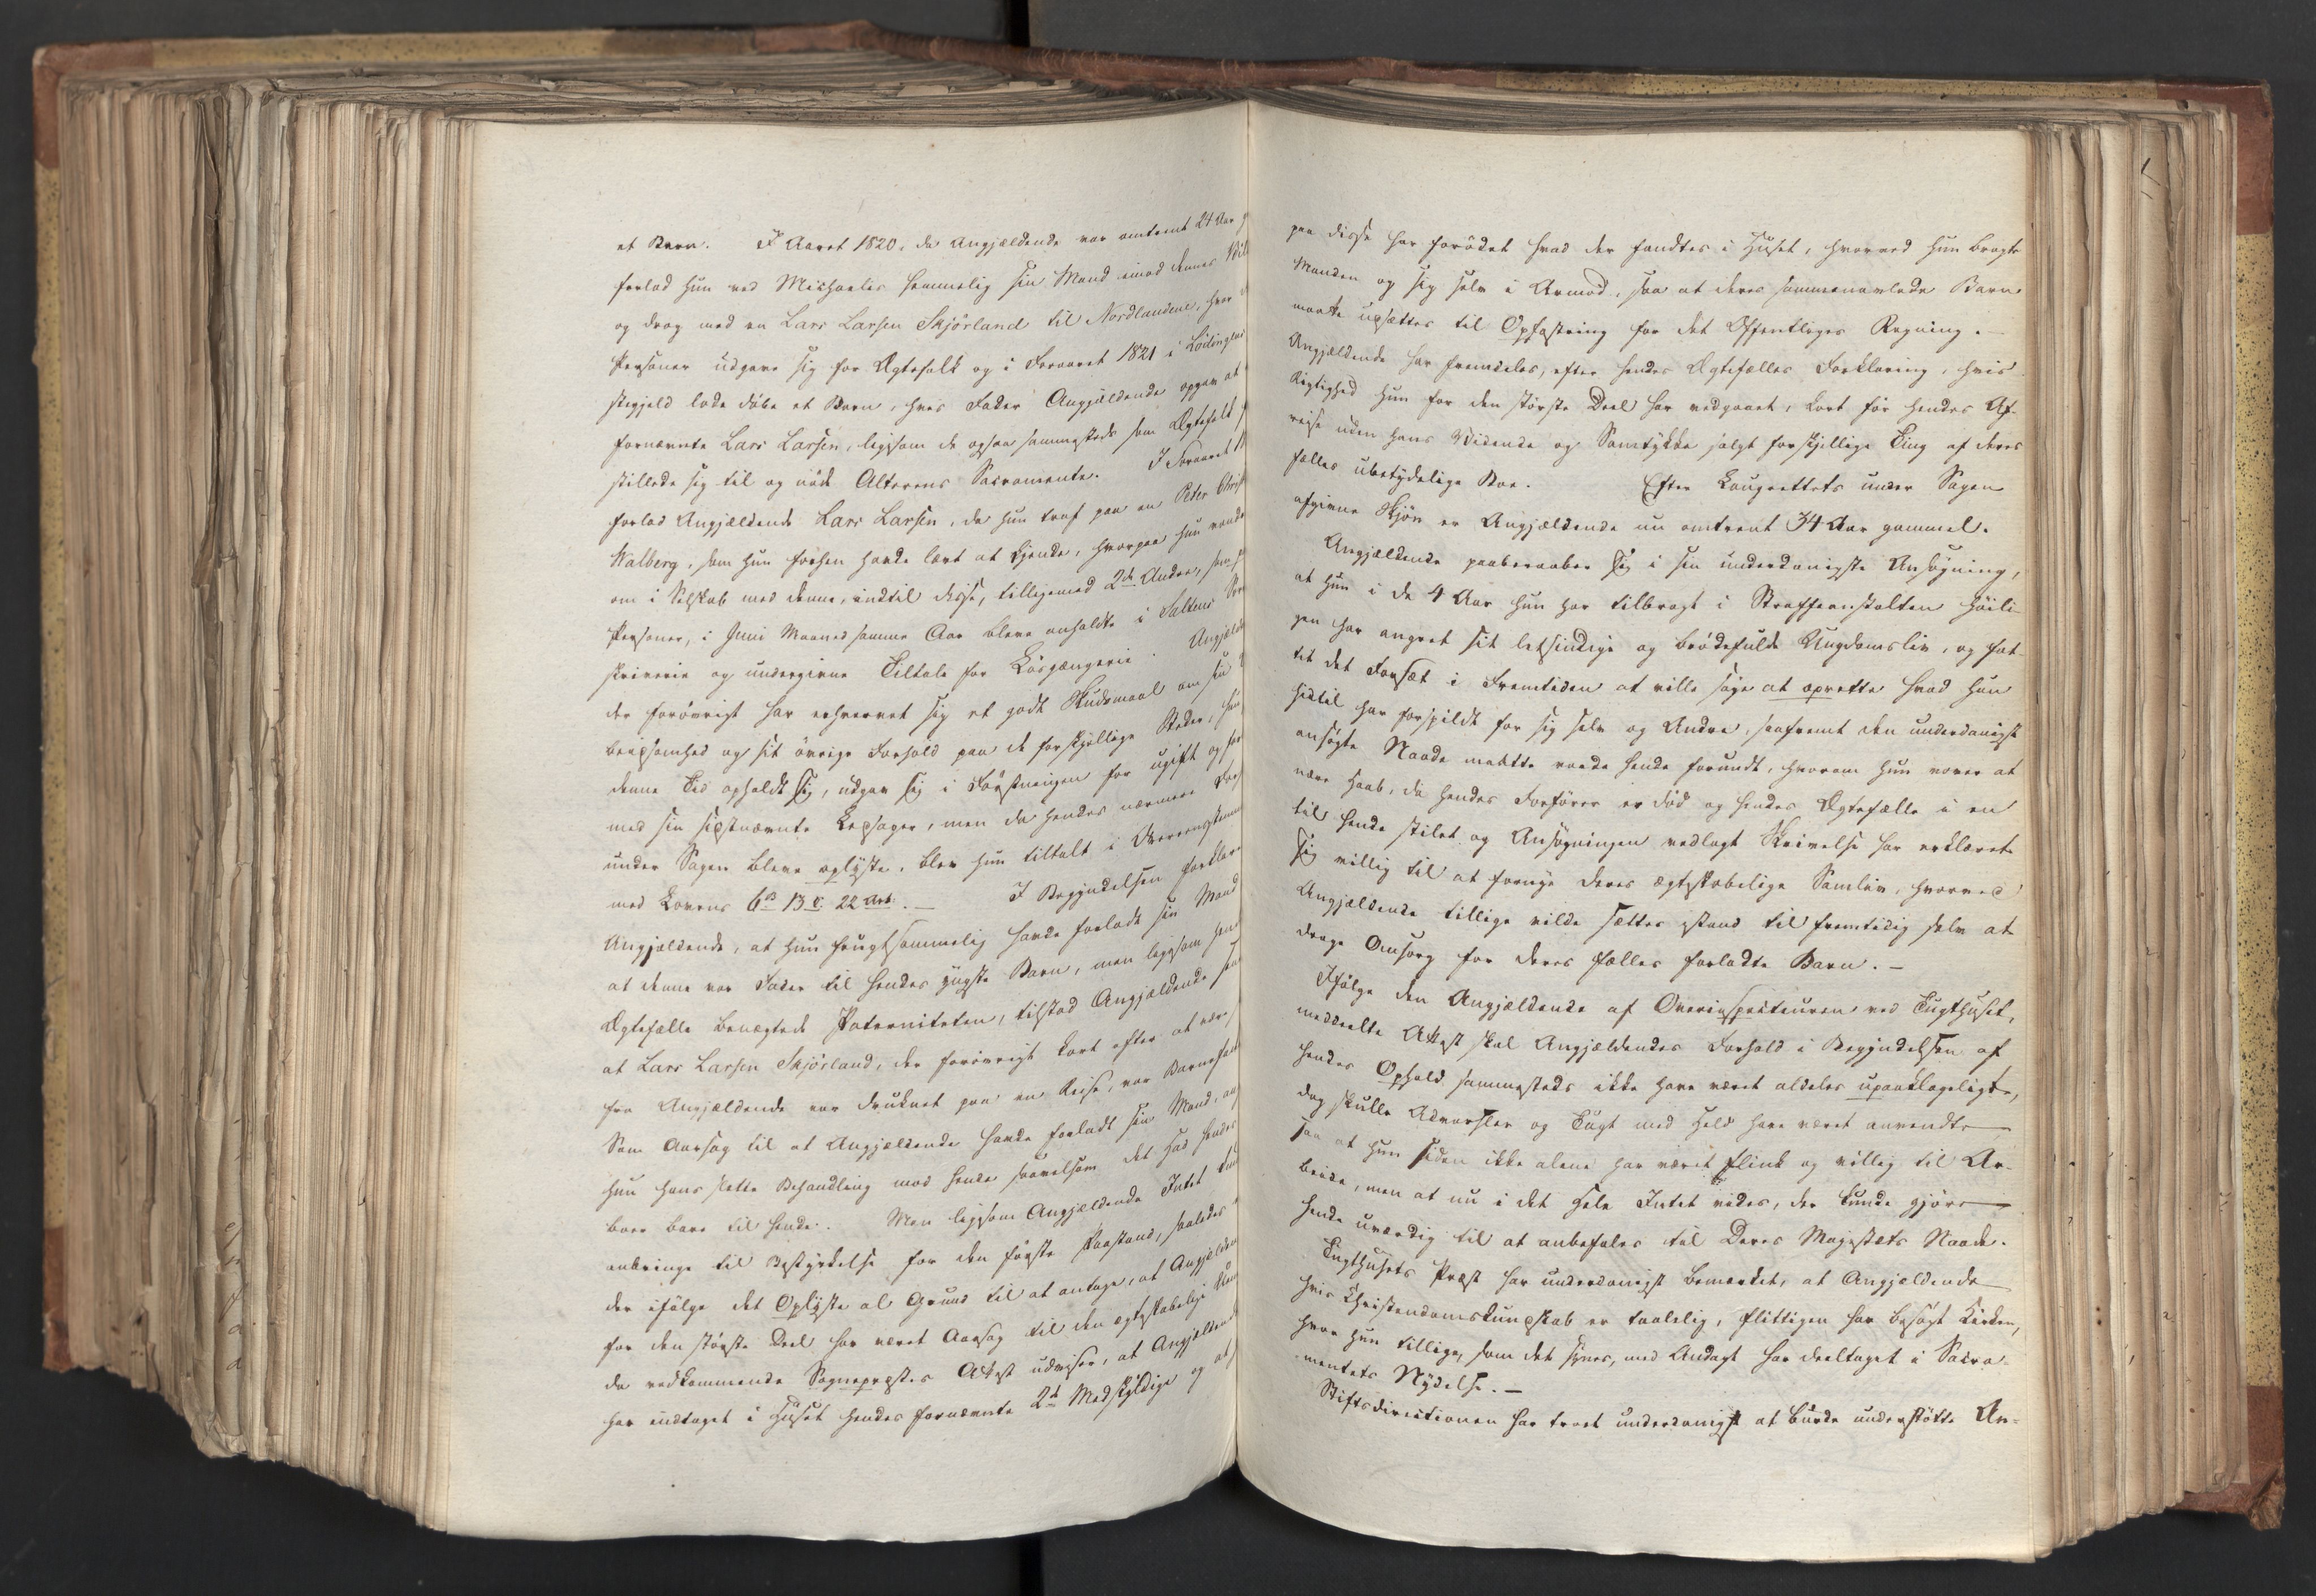 et Barn. I Aaret 1820, da Angjældende var omtrent 24 Aar
forlod hun ved Michaelis hemmelig sin Mand imod dennes
og drog med en Lars Larsen Skjörland til Nordlandene, hvor
Personer udgave sig for Ægtefolk og i Foraaret 1821 i Lödingens
stegjeld lode döbe et Barn, hvis Fader Angjældende opgav at
fornævnte Lars Larsen, ligesom de ogsaa sammesteds som Ægtefolk
stillede sig til og nöde Alterens Sacramente. I Foraaret
forlod Angjældende Lars Larsen, da hun traf paa en Peter
Walberg, som hun forhen havde lært at kjende, hvorpaa hun
om i Selskab med denne, indtil disse, tilligemed 2de Andre,
Personer, i Juni Maaned samme Aar bleve anholdte i Saltens
skriverie og undergivne Tiltale for Lösgængerie. Angjældende
der forövrigt har erhvervet sig et godt Skudsmaal om sin
beidsomhed og sit övrige Forhold paa de forskjellige Steder, hun
denne Tid opholdt sig, udgav sig i Förstningen for ugift og
med sin sidstnævnte Ledsager, men da hendes nærmere
under Sagen bleve oplyste, blev hun tiltalt i Overensstemmelse
med Lovens 6te B 13 C 22 Art. — I Begyndelsen forklarede
Angjældende, at hun frugtsommelig havde forladt sin Mand
at denne var Fader til hendes yngste Barn, men ligesom
Ægtefælle benægtede Paterniteten, tilstod Angjældende
at Lars Larsen Skjörland, der forövrigt kort efter at være
fra Angjældende var druknet paa en Reise, var Barnefader
Som Aarsag til at Angjældende havde forladt sin Mand,
hun hans slette Behandling mod hende saavelsom det Had hendes
bare til hende. Men ligesom Angjældende Intet
anbringe til Bestyrkelse for den förste Paastand, saaledes
der ifölge det Oplyste al Grund til at antage, at Angjældende
for den störste Deel har været Aarsag til den ægteskabelige
da vedkommende Sognepræstes Attest udviser, at Angjældende
har indtaget i Huset hendes fornævnte 2de Medskyldige og at
paa disse har forödet hvad der fandtes i Huset, hvorved hun bragte
Manden og sig selv i Armod, saa at deres sammenavlede Barn
maatte udsættes til Opfostring for det Offentliges Regning. —
Angjældende har fremdeles, efter hendes Ægtefælles Forklaring, hvis
Rigtighed hun for den störste Deel har vedgaaet, kort för hendes Af-
reise uden hans Vidende og Samtykke solgt forskjellige Ting af deres
fælles ubetydelige Boe. Efter Laugrettets under Sagen
afgivne Skjön er Angjældende nu omtrent 34 Aar gammel.
Angjældende paaberaaber sig i sin underdanigste Ansögning,
at hun i de 4 Aar hun har tilbragt i Straffeanstalten höili-
gen har angret sit letsindige og brödefulde Ungdomsliv, og fat-
tet det Forsæt i Fremtiden at ville söge at oprette hvad hun
hidtil har forspildt for sig selv og Andre, saafremt den underdanigst
ansögte Naade maatte vorde hende forundt, hvorom hun vover at
nære Haab, da hendes Forförer er död og hendes Ægtefælle i en
til hende stilet og Ansögningen vedlagt Skrivelse har erklæret
sig villig til at fornye deres ægteskabelige Samliv, hvorved
Angjældende tillige vilde sættes istand til fremtidig selv at
drage Omsorg for deres fælles forladte Barn. —
Ifölge den Angjældende af Overinspecteuren ved Tugthuset,
meddeelte Attest skal Angjældendes Forhold i Begyndelsen af
hendes Ophold sammesteds ikke have været aldeles upaaklageligt,
dog skulle Advarsler og Tugt med Held have været anvendte
saa at hun siden ikke alene har været flink og villig til Ar-
beide, men at nu i det Hele Intet vides, der kunde gjöre
hende uværdig til at anbefales til Deres Majestæts Naade.
Tugthusets Præst har underdanigst bemærket, at Angjældende
hvis Christendomskundskab er taalelig, flittigen har besögt Kirken,
hvor hun tillige, som det synes, med Andagt har deeltaget i Sacra-
mentets Nydelse. —
Stiftsdirectionen har troet underdanigst at burde understötte An-